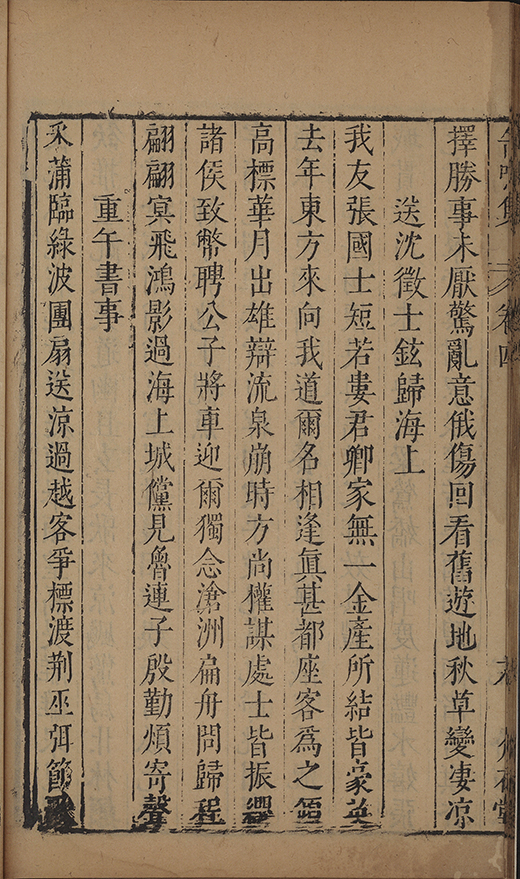 集 卷四
擇勝事未厭驚亂意俄傷回看舊遊地秋草變凄凉
送沈徵士鉉歸海上
我友張國士短若婁君卿家無一金產所結皆豪英
去年東方來向我道爾名相逢眞甚都座客爲之傾
高標華月出雄辯流泉崩時方尚權謀處士皆振纓
諸侯致幣聘公子將車迎爾獨念滄洲扁舟問歸程
翩翩冥飛鴻影過海上城儻見魯連子殷勤煩寄聲
重午書事
采蒲臨綠波團扇送涼過越客爭標渡荆巫弭節